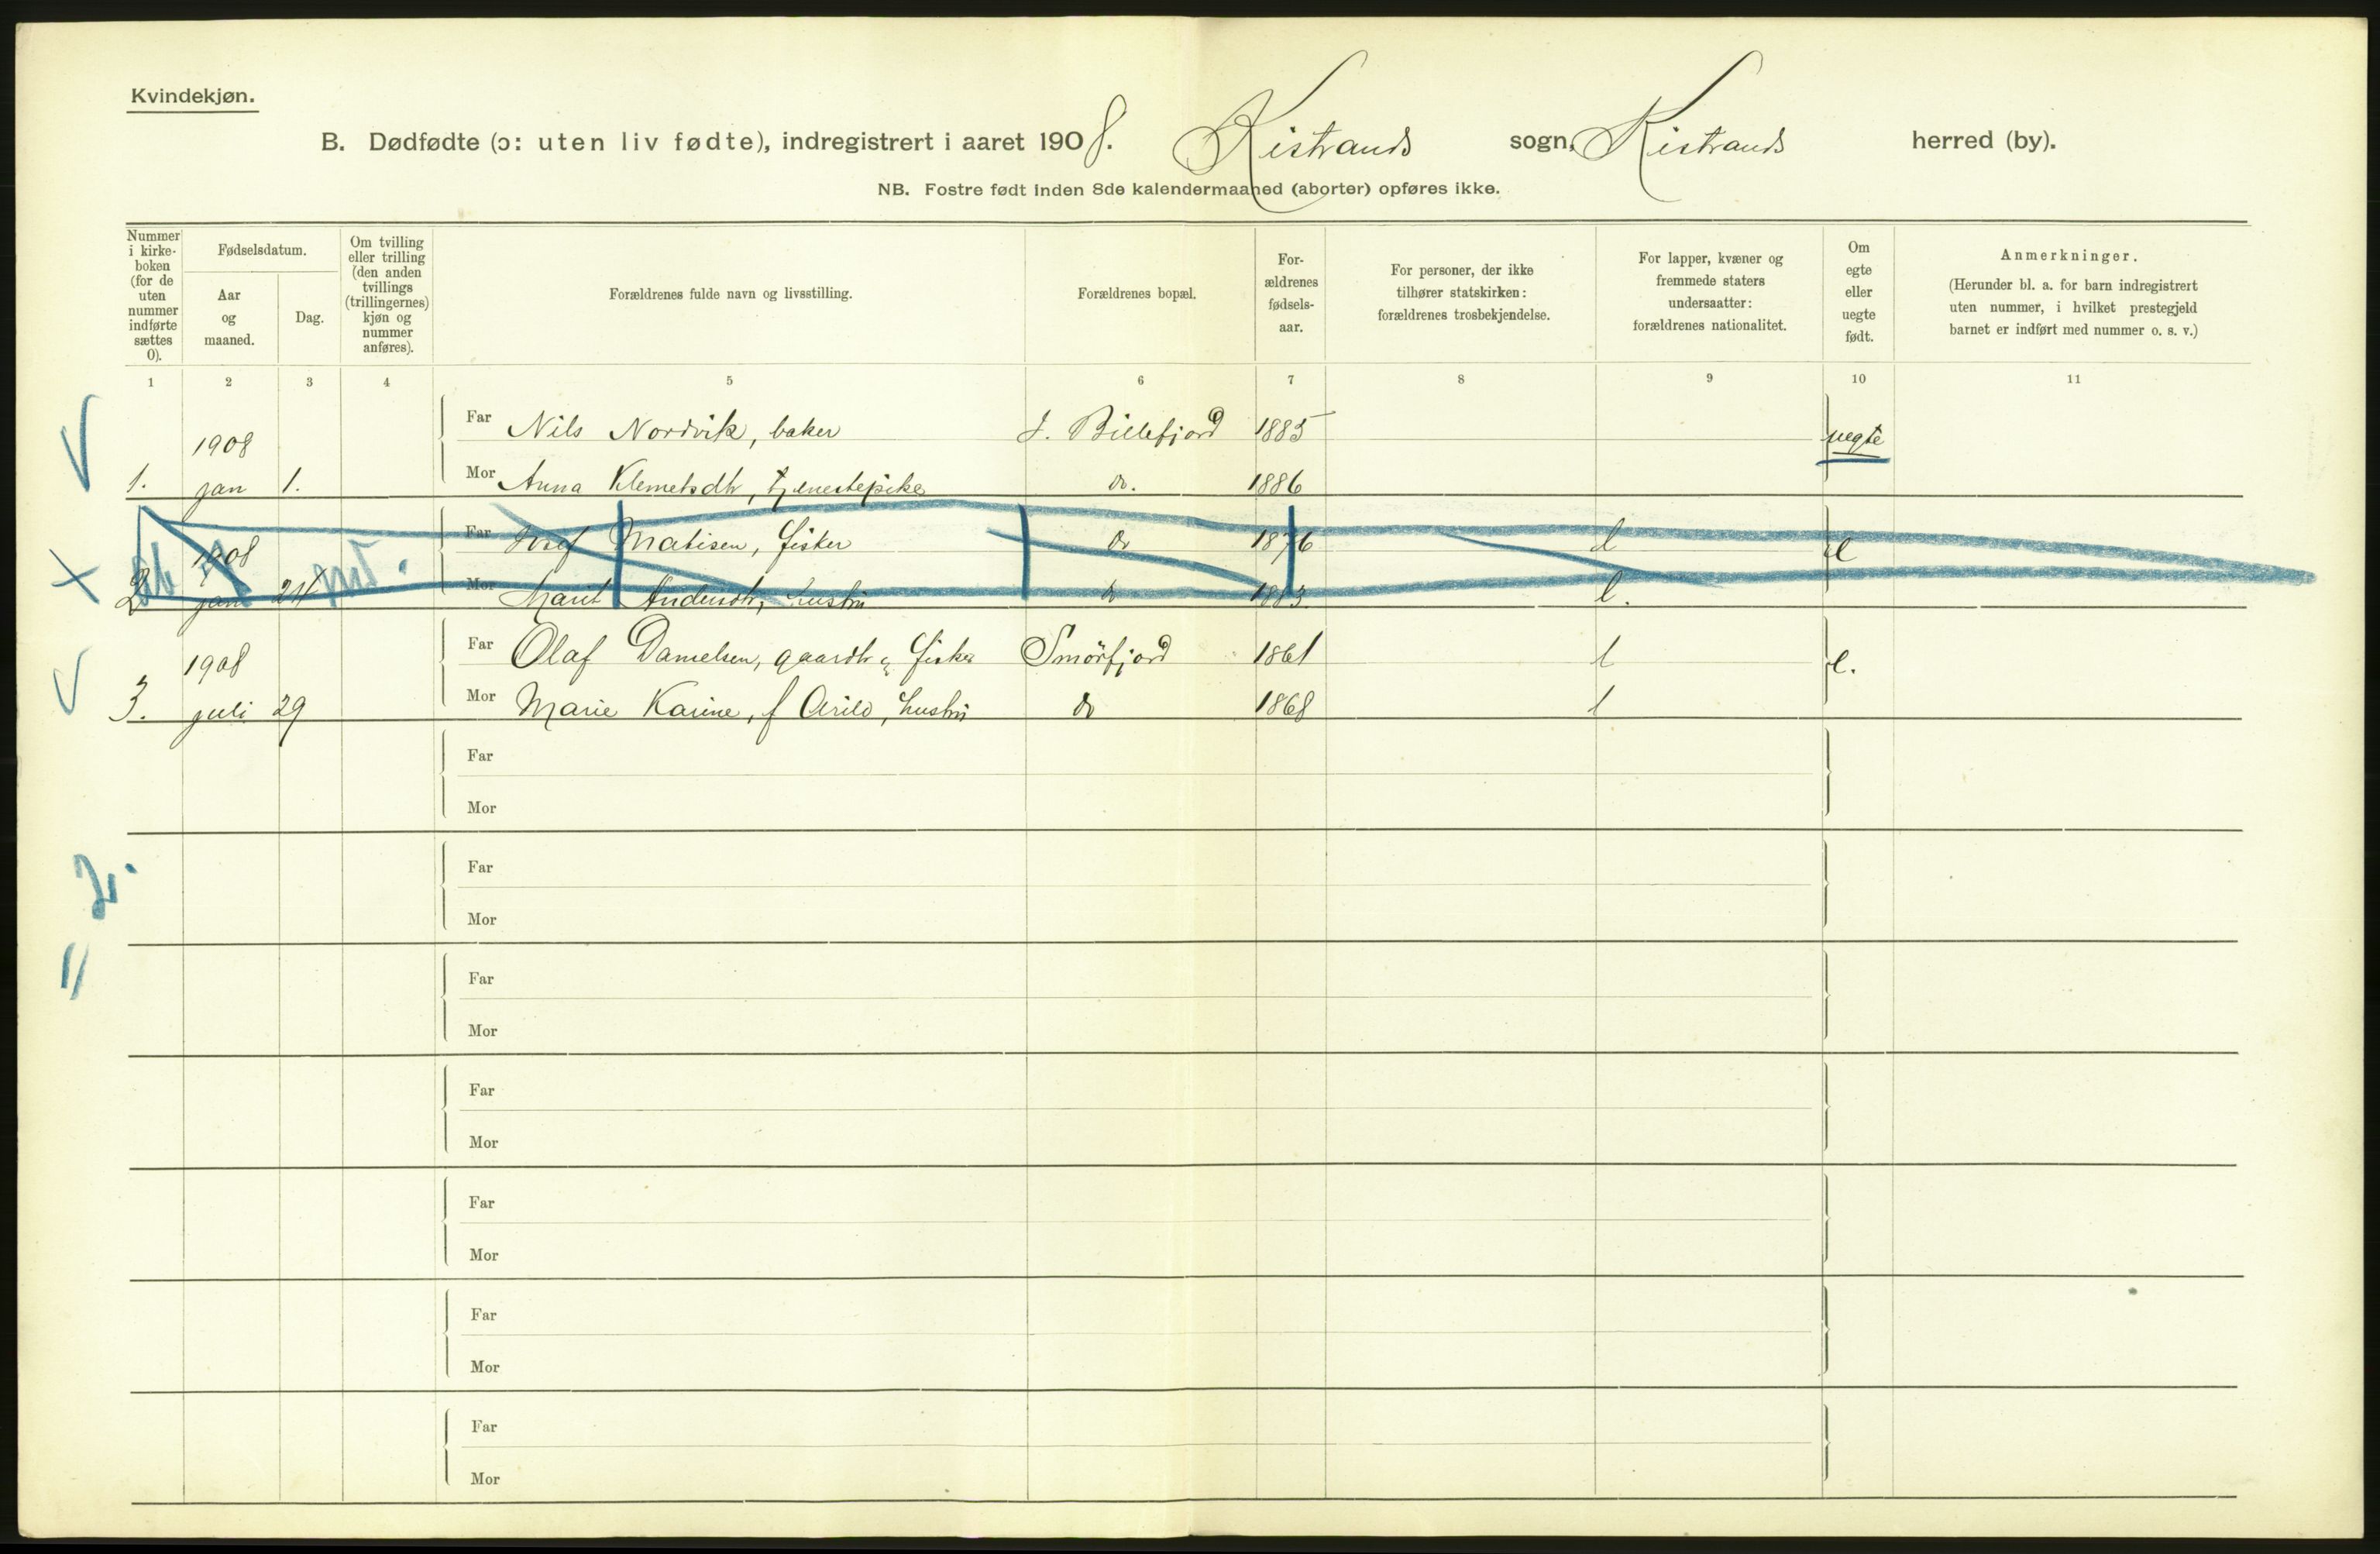 Kvindekjøn.
B. Dødfødte (ɔ: uten liv fødte), indregistrert i aaret 1908. Kistrands sogn, Kistrands herred (by).
NB. Fostre født inden 8de kalendermaaned (aborter) opføres ikke.
Nummer i kirke-boken (for de uten nummer indførte sættes 0).
Fødselsdatum.
Aar og maaned.
Dag.
Om tvilling eller trilling (den anden tvillings (trillingernes) kjøn og nummer anføres).
Forældrenes fulde navn og livsstilling.
Forældrenes bopæl.
For-ældrenes fødsels-aar.
For personer, der ikke tilhører statskirken: forældrenes trosbekjendelse.
For lapper, kvæner og fremmede staters undersaatter: forældrenes nationalitet.
Om egte eller uegte født.
Anmerkninger.
(Herunder bl. a. for barn indregistrert uten nummer, i hvilket prestegjeld barnet er indført med nummer o. s. v.)
1 2 3 4 5 6 7 8 9 10 11
1908 Far Nils Nordvik, baker I. Billefjord 1885 uegte
1. jan 1. Mor Anna Klemetsdtr, tjenestepike do. 1886
1908 Far Josef Matisen, fisker do 1876 l e
2 jan 24 Mor Marit Andersdtr, hustru do 1883 l.
1908 Far Olaf Danielsen, gaardbr & fisker Smörfjord 1861 l e.
3. juli 29 Mor Marie Karine, f Arild, hustru do 1868 l
Far
Mor
2.
Far
Mor
Far
Mor
Far
Mor
Far
Mor
Far
Mor
Far
Mor